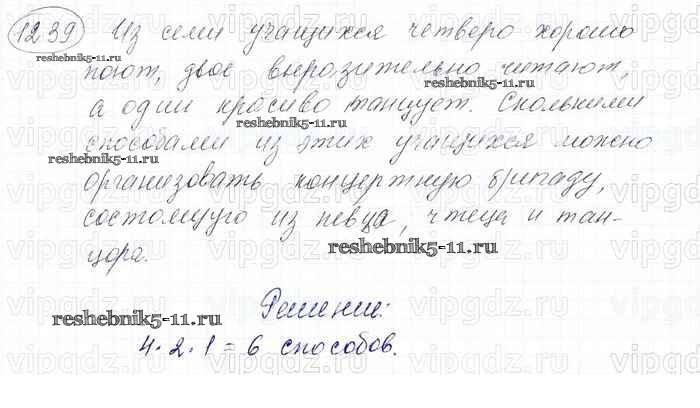 1239 Из семи учащихся четверо хорошо
reshebnik5-11.ru
поют, двое выразительно читают,
reshebnik5-11.ru
а один красиво танцует. Сколькими
reshebnik5-11.ru
способами из этих учащихся можно
reshebnik5-11.ru
организовать концертную бригаду,
состоящую из певца, чтеца и тан-
цора.
reshebnik5-11.ru
Решение:
reshebnik5-11.ru
4·2·1 = 6 способов.